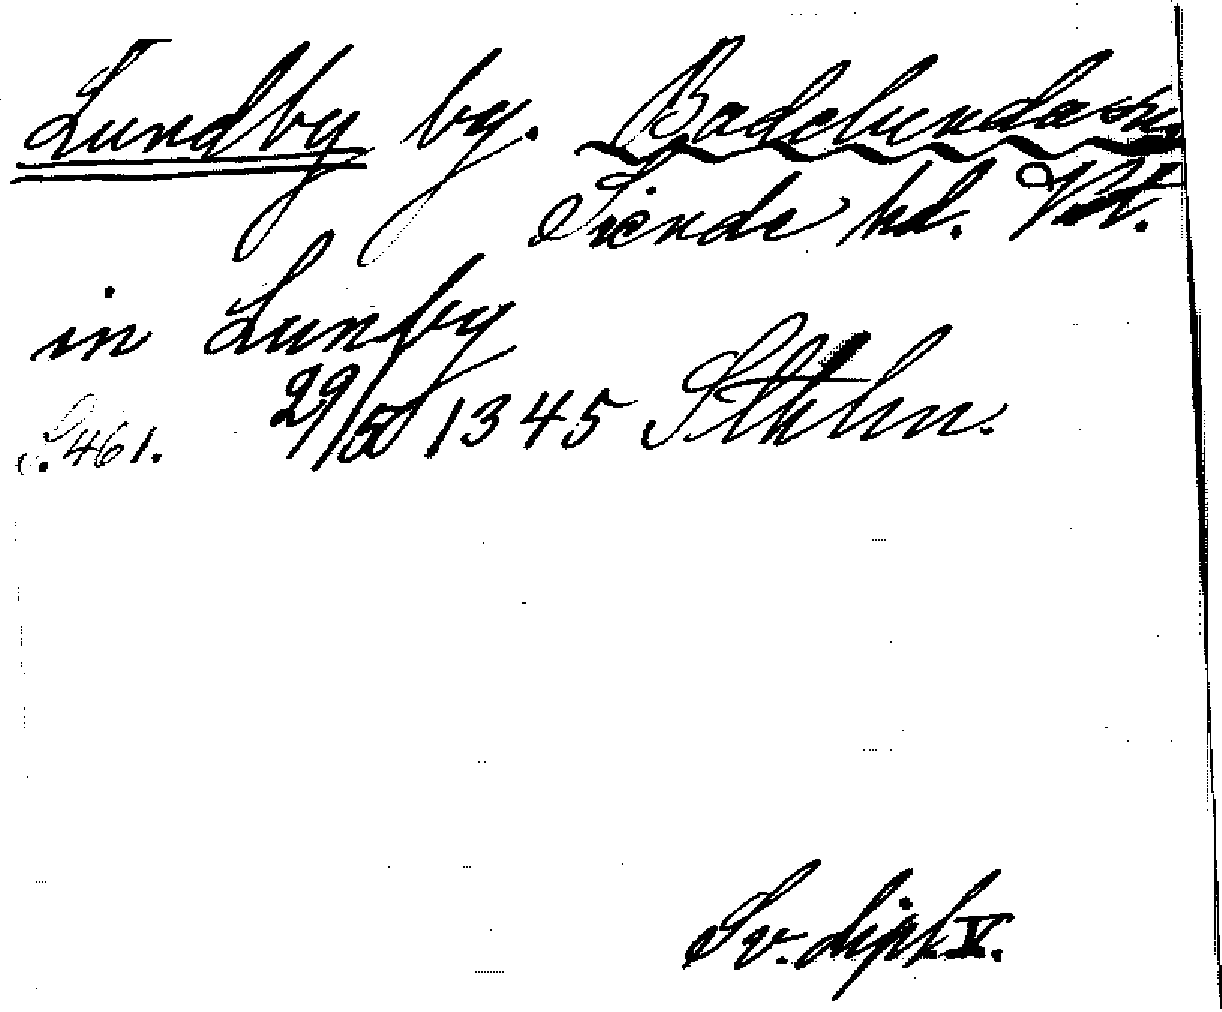 Lundby by. Badelunda sn,
Siende hd. Vstm.
in Lunby
S. 461. 29/5 1345 Sthlm.
Sv. dipl. V.